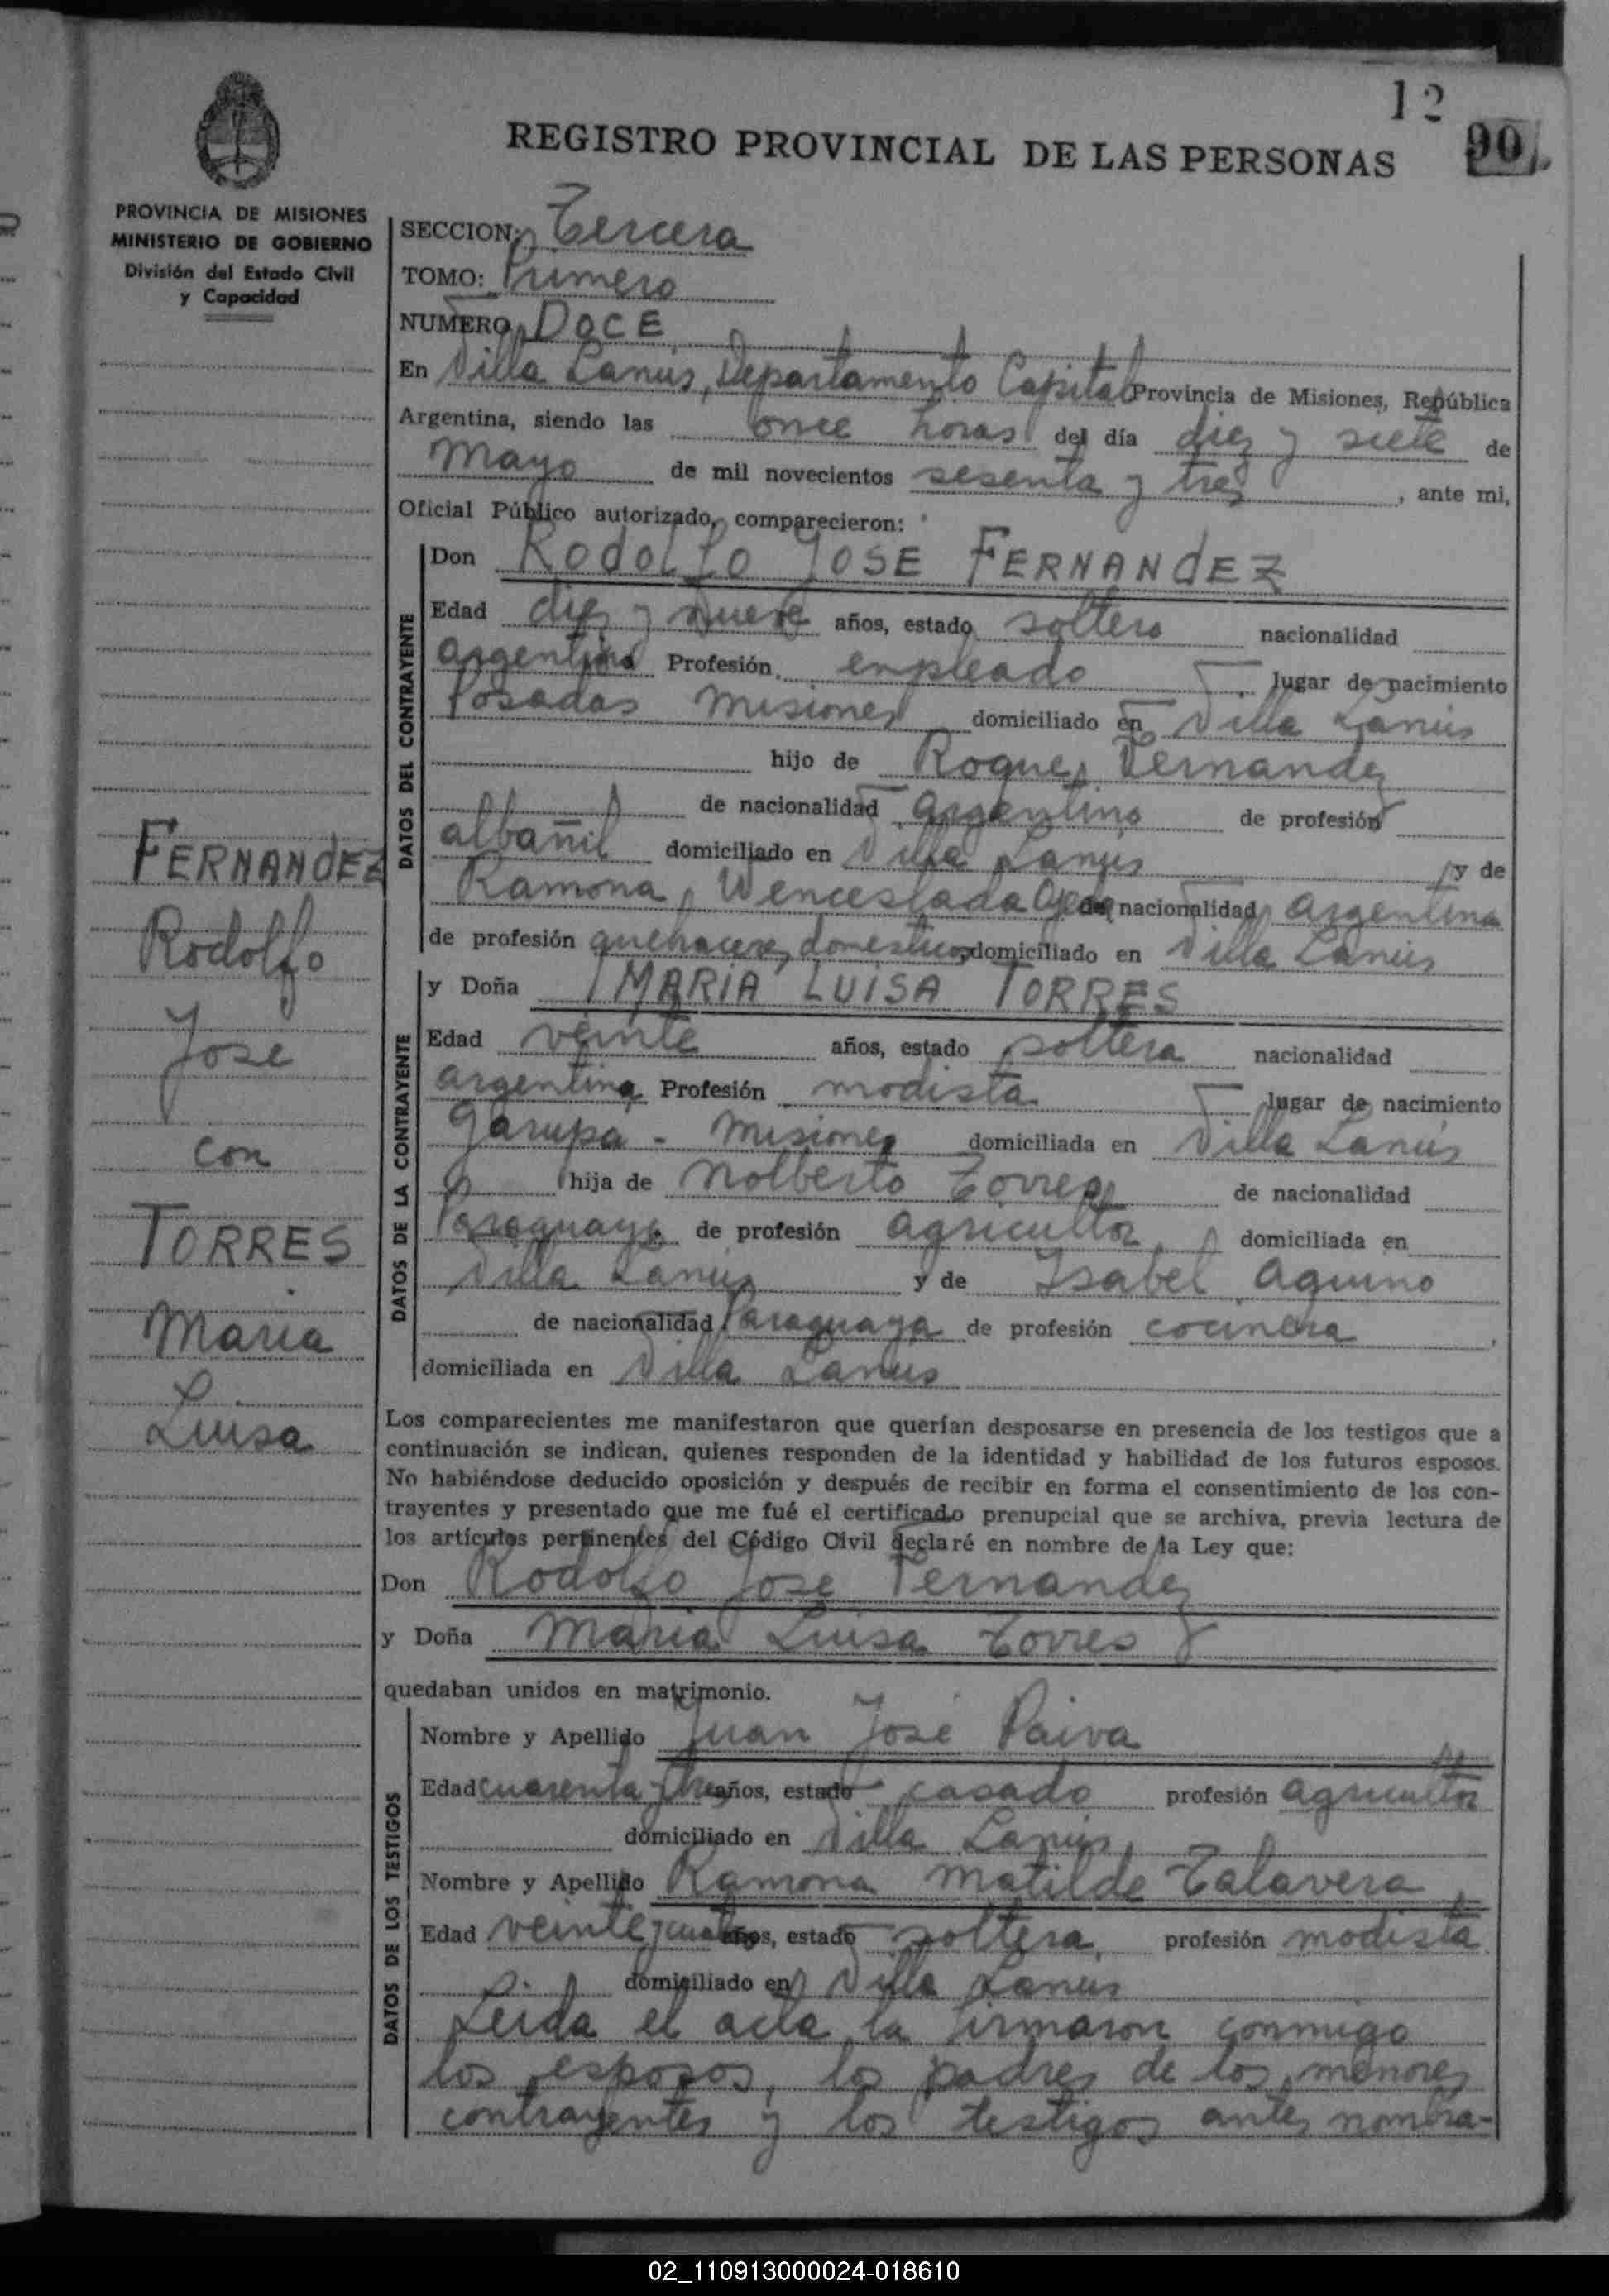 12
90
REGISTRO PROVINCIAL DE LAS PERSONAS
PROVINCIA DE MISIONES
MINISTERIO DE GOBIERNO
División del Estado Civil
y Capacidad
SECCION: Tercera
TOMO: Primero
NUMERO DOCE
En Villa Lanús, Departamento Capital Provincia de Misiones, República
Argentina, siendo las once horas del día diez y siete de
Mayo de mil novecientos sesenta y tres, ante mi,
Oficial Público autorizado, comparecieron:
DATOS DEL CONTRAYENTE
Don RODOLFO JOSE FERNANDEZ
Edad diez y nueve años, estado soltero nacionalidad
argentina Profesión empleado lugar de nacimiento
Posadas Misiones domiciliado en Villa Lanús
hijo de Roque Fernandez
de nacionalidad argentino de profesión
albañil domiciliado en Villa Lanús y de
Ramona Wenceslada de nacionalidad argentina
de profesión quehaceres domesticos domiciliado en Villa Lanús
DATOS DE LA CONTRAYENTE
y Doña MARIA LUISA TORRES
Edad veinte años, estado soltera nacionalidad
argentina Profesión modista lugar de nacimiento
Garupa - Misiones domiciliada en Villa Lanús
hija de Nolberto Torres de nacionalidad
Paraguayo de profesión agricultor domiciliada en
Villa Lanús y de Isabel Aquino
de nacionalidad Paraguaya de profesión cocinera,
domiciliada en Villa Lanús
Los comparecientes me manifestaron que querían desposarse en presencia de los testigos que a
continuación se indican, quienes responden de la identidad y habilidad de los futuros esposos.
No habiéndose deducido oposición y después de recibir en forma el consentimiento de los con-
trayentes y presentado que me fué el certificado prenupcial que se archiva, previa lectura de
los artículos pertinentes del Código Civil declaré en nombre de la Ley que:
Don Rodolfo Jose Fernandez
y Doña Maria Luisa Torres
quedaban unidos en matrimonio.
DATOS DE LOS TESTIGOS
Nombre y Apellido Juan José Paiva
Edad cuarenta y tres años, estado casado profesión agricultor
domiciliado en Villa Lanús,
Nombre y Apellido Ramona Matilde Talavera
Edad veinte y cuatro años, estado soltera, profesión modista
domiciliado en Villa Lanús
Leida el acta la firmaron conmigo
los esposos, los padres de los menores
contrayentes y los testigos antes nombra-
FERNANDEZ
Rodolfo
Jose
con
TORRES
Maria
Luisa
02_110913000024-018610